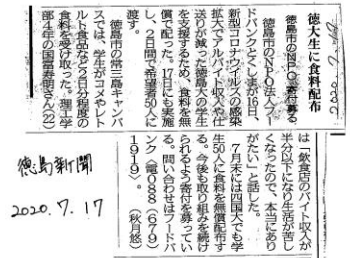 徳大生に食料配布
徳島市のNPO、寄付募る
徳島市のNPO法人フー
ドバンクとくしまが16日、
新型コロナウイルスの感染
拡大でアルバイト収入や仕
送りが減った徳島大の学生
を支援するため、食料を無
償で配った。17日にも実施
し、2日間で希望者50人に
渡す。
徳島市の常三島キャンパ
スでは、学生がコメやレト
ルト食品など2日分程度の
食料を受け取った。理工学
部4年の国富寿明さん(22)
は「飲食店のバイト収入が
半分以下になり生活が苦し
くなったので、本当にあり
がたい」と話した。
7月末には四国大でも学
生50人に食料を無償配布す
る。今後も取り組みを続け
られるよう寄付を募ってい
る。問い合わせはフードバ
ンク〈電088(679)
1919〉。
(秋月悠)
徳島新聞
2020.7.17